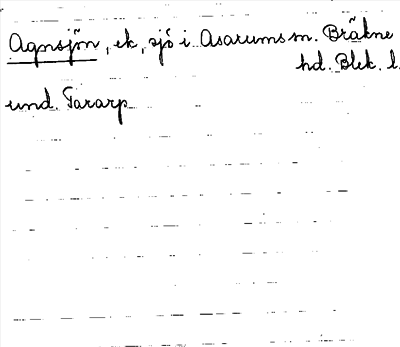 Agnsjön, ek, sjö i Asarums sn. Bräkne
hd. Blek. l.
und. Tararp